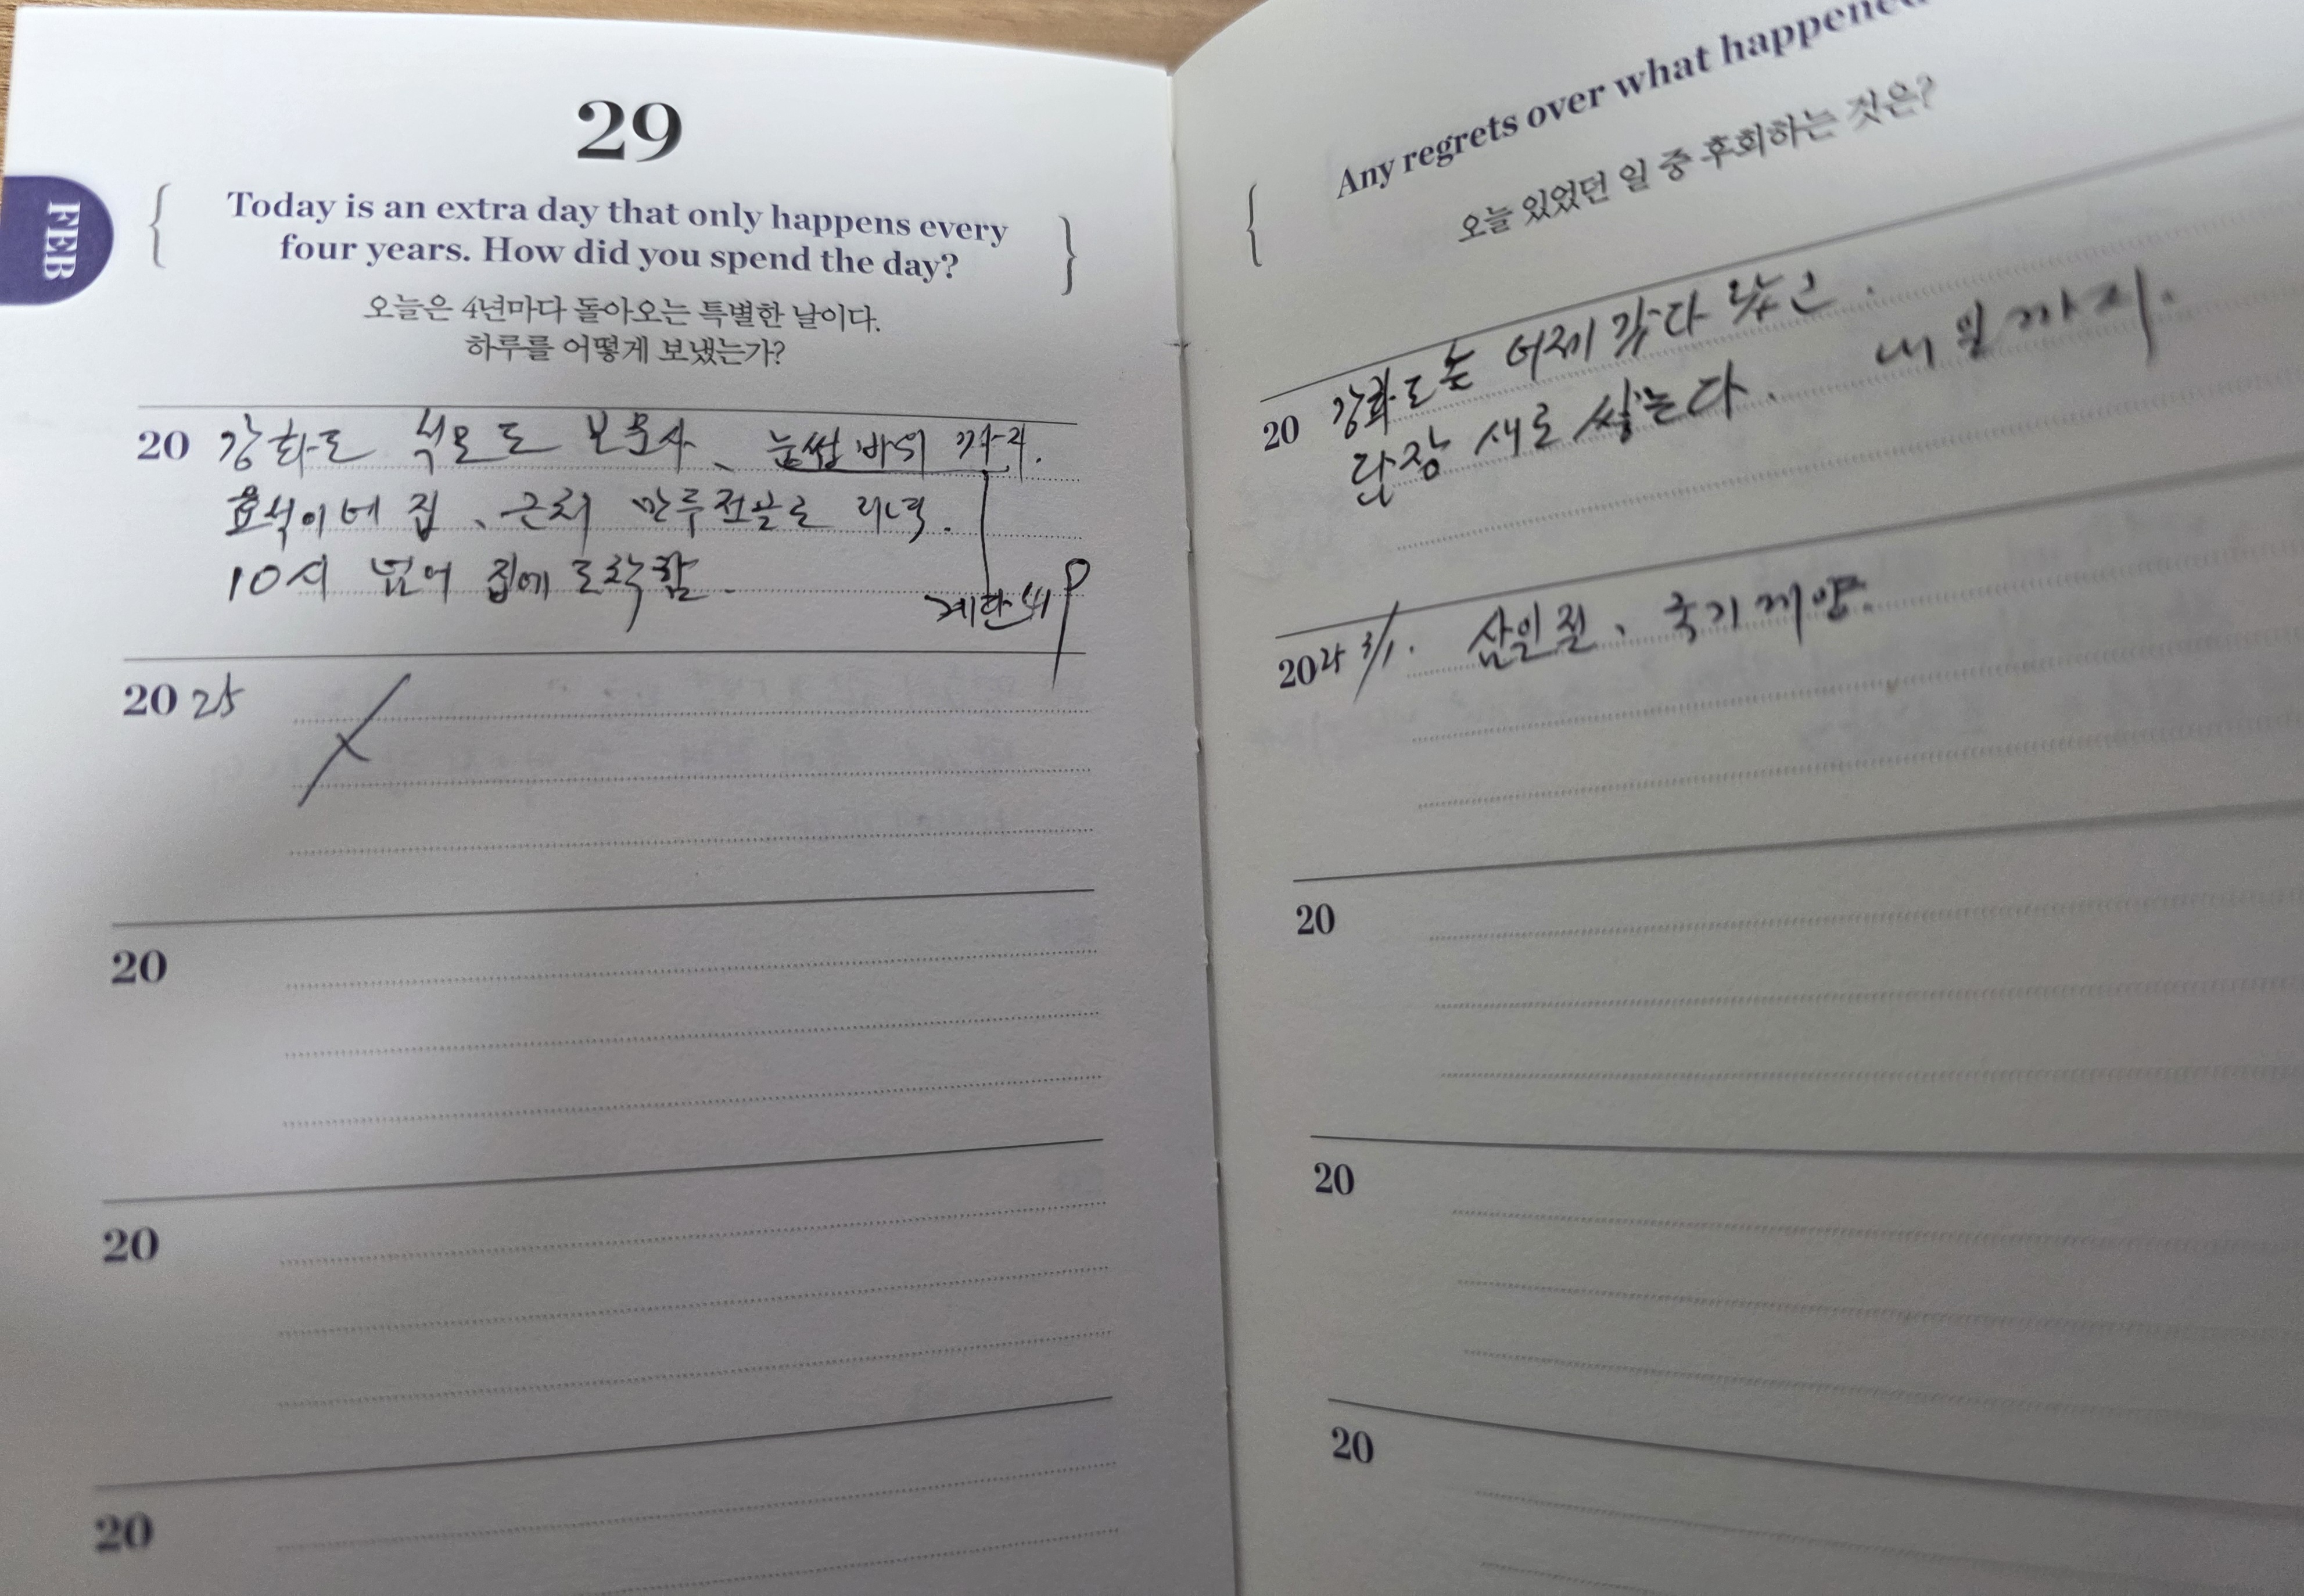 29
FEB
Today is an extra day that only happens every
four years. How did you spend the day?
오늘은 4년마다 돌아오는 특별한 날이다.
하루를 어떻게 보냈는가?
20 강화도 석모도 보문사、눈썹바위 까지.
효석이네 집、근처 만두전골로 저녁.
10시 넘어 집에 도착함.
계단
20 25
20
20
20
Any regrets over what happened
오늘 있었던 일 중 후회하는 것은?
20 강화도는 어제 갔다 왔고.
담장 새로 쌓는다. 내일까지.
2025 3/1. 삼일절、국기게양.
20
20
20